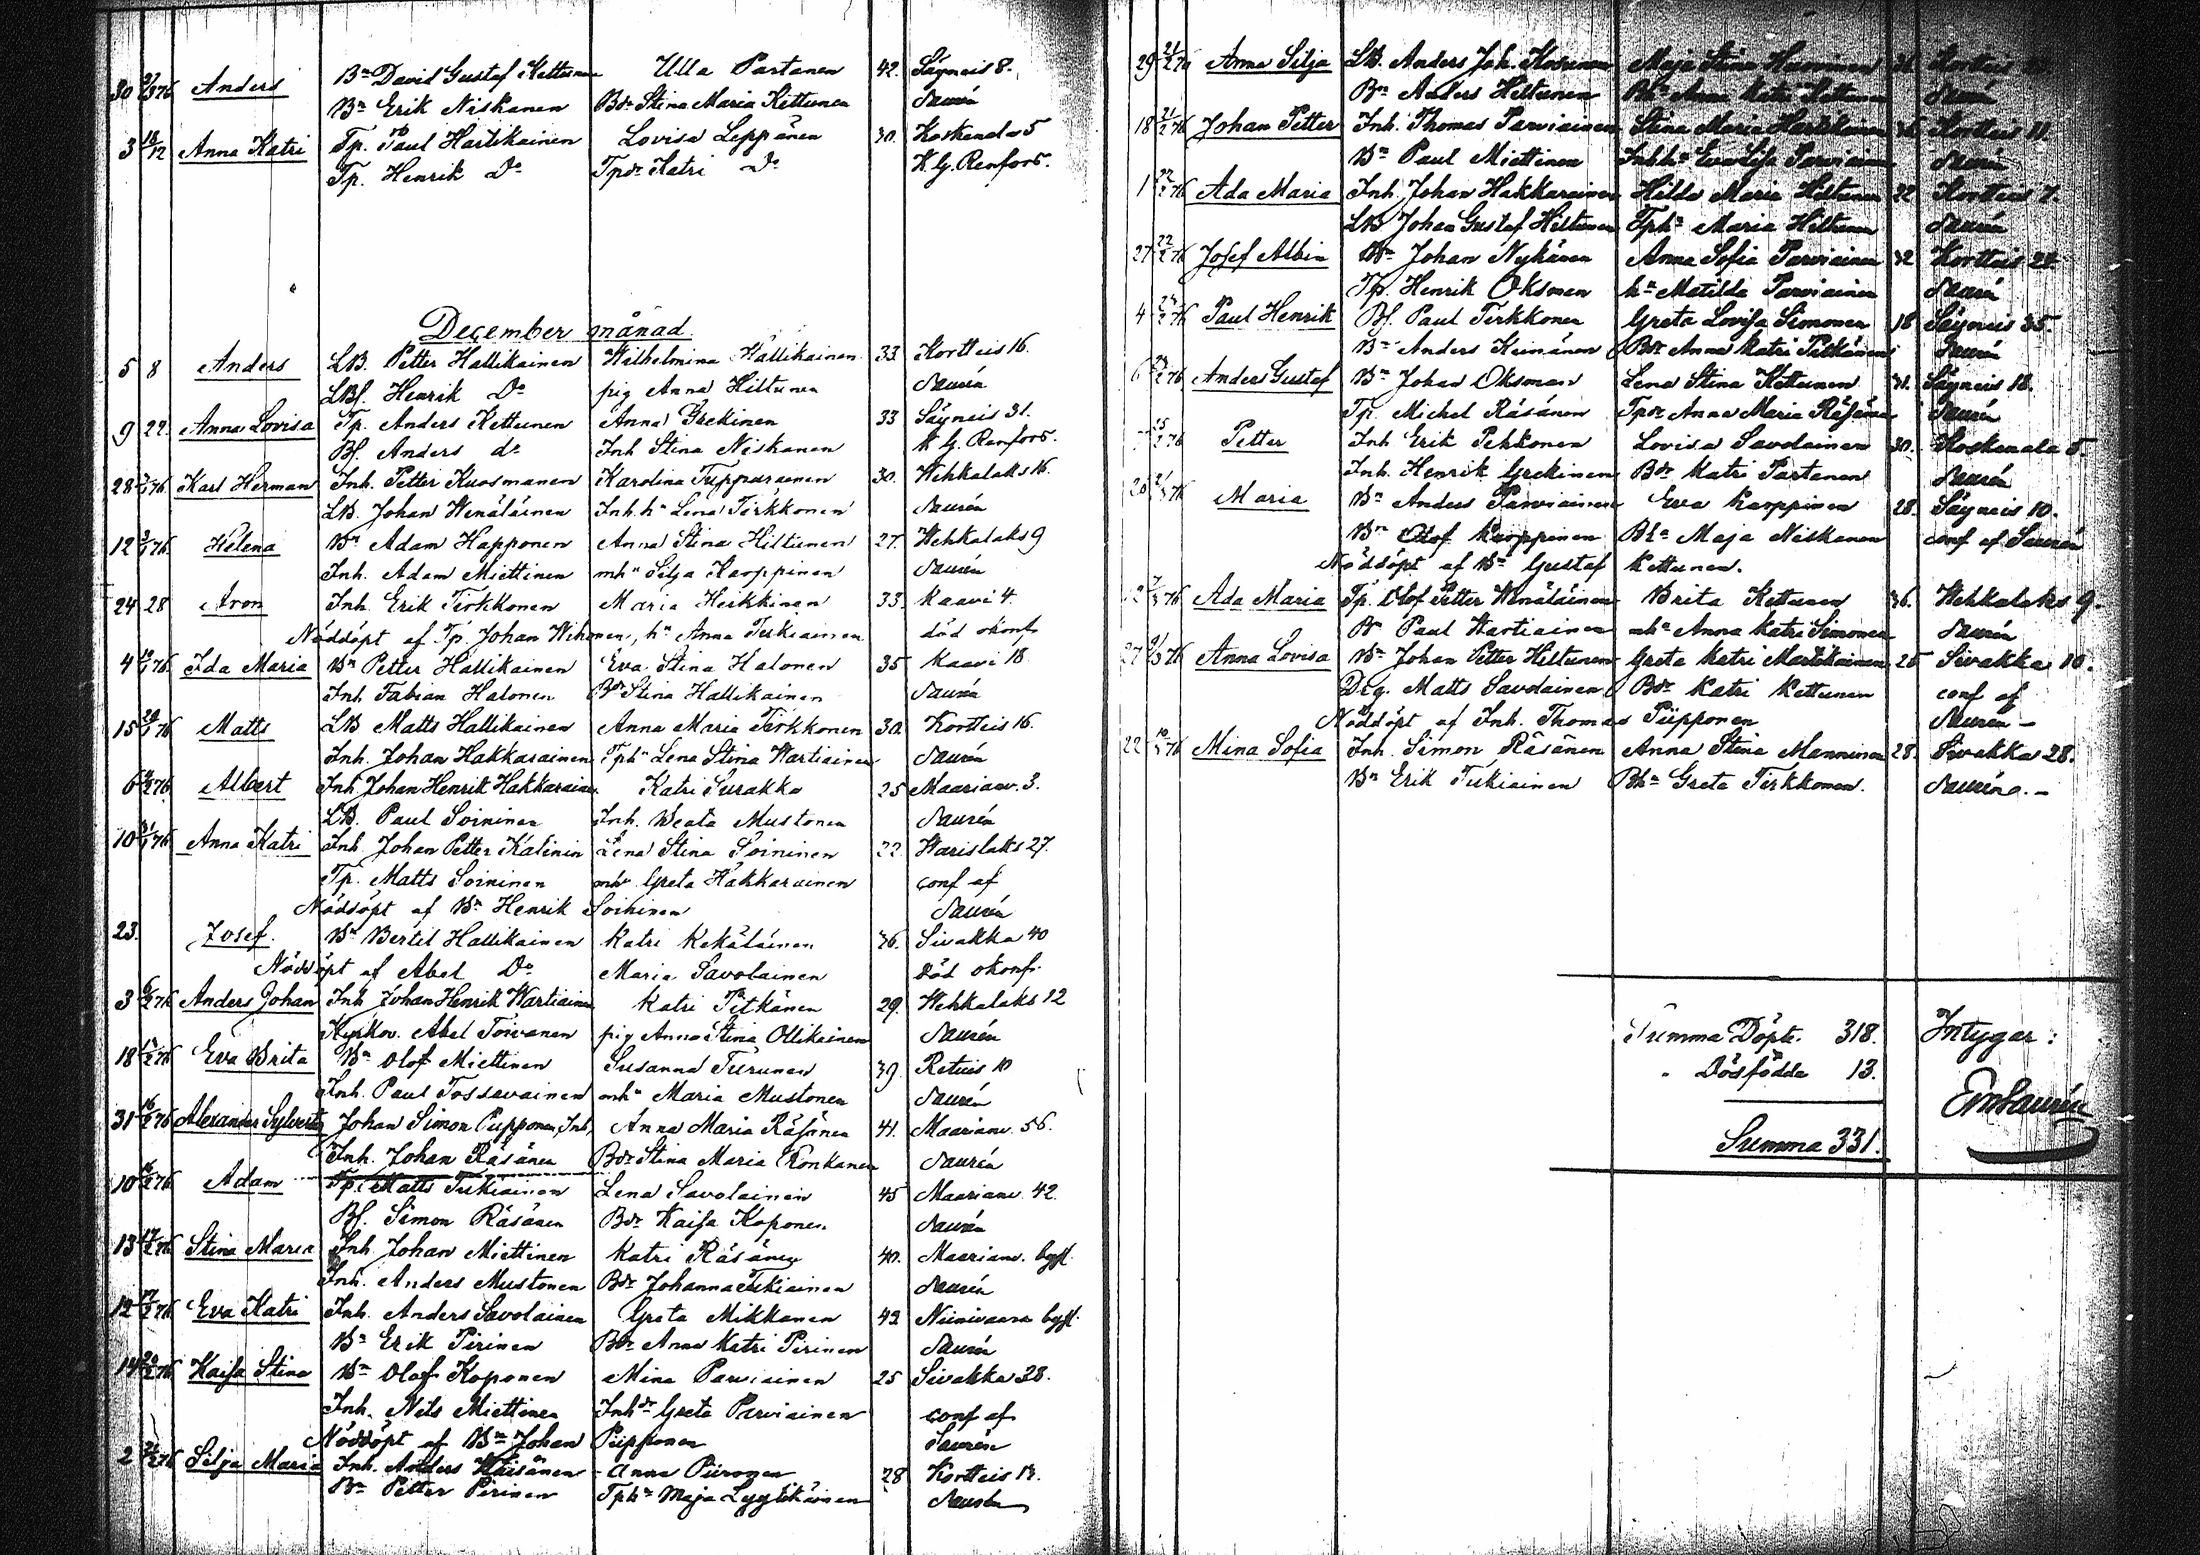 30 Anders Bn David Gustaf Kettunen Ulla Partanen 42. Säyneis 8.
Bn Erik Niskanen Bdr Stina Maria Kettunen Saurén
3 Anna Katri Tp. Paul Hartikainen Lovisa Leppänen 30. Koskenala 5
Tp. Henrik Do Tpdr Katri Do K. G. Renfors.
December månad.
5 8 Anders LB. Petter Hallikainen Wilhelmina Hallikainen 33 Kortteis 16.
LBf. Henrik Do pig Anna Hiltunen Saurén
9 22. Anna Lovisa Tp. Anders Kettunen Anna Grekinen 33 Säyneis 31.
Bf. Anders do Inh Stina Niskanen K. G. Renfors.
28 Karl Herman Inh. Petter Kuosmanen Karolina Tuppurainen 30. Wehkalaks 16.
LB. Johan Wenäläinen Inh.hu Lena Tirkkonen Saurén
12 Helena Bn Adam Happonen Anna Stina Hiltunen 27. Wehkalaks 9
Inh. Adam Miettinen mhu Silja Karppinen Saurén
24 28 Aron Inh. Erik Tirkkonen Maria Heikkinen 33. Kaavi 4.
Nöddöpt af Tp. Johan Wihonen, hu Anna Tukiainen död okonf.
4 Ida Maria Bn Petter Hallikainen Eva Stina Halonen 35 Kaavi 18.
Inh Fabian Halonen Bdr Stina Hallikainen Saurén
15 Matts LB Matts Hallikainen Anna Maria Tirkkonen 30. Kortteis 16.
Inh. Johan Hakkarainen Tphu Lena Stina Wartiainen Saurén
6 Albert Inh. Johan Henrik Hakkarainen Katri Surakka 25 Maarianv. 3.
LB. Paul Soininen Inh. Beata Mustonen Saurén
10 Anna Katri Inh. Johan Petter Katinin Lena Stina Soininen 22. Warislaks 27.
Tp. Matts Soininen mhu Greta Hakkarainen conf af
Nöddöpt af Bn Henrik Soininen Saurén
23. Josef. Bn Bertil Hallikainen Katri Kekäläinen 36. Sivakka 40
Nöddöpt af Abel Do Maria Savolainen död okonf.
3 Anders Johan Inh Johan Henrik Wartiainen Katri Pitkänen 29. Wehkalaks 12
Kyrkov. Abel Toivanen pig Anna Stina Ollikainen Saurén
18 Eva Brita Bn Olof Miettinen Susanna Turunen 39. Retuis 10
Inh. Paul Tossavainen mhu Maria Mustonen Saurén
31 Alexander Sylvester Johan Simon Pupponen, Inh, Anna Maria Räsänen 41. Maarianv. 56.
Inh. Johan Räsänen Bdr Stina Maria Ronkanen Saurén
10 Adam Tp. Matts Tukiainen Lena Savolainen 45 Maarianv. 42.
Bf. Simon Räsänen Bdr Kaisa Koponen Saurén
13 Stina Maria Inh. Johan Miettinen Katri Räsänen 40. Maarianv. bysl.
Inh. Anders Mustonen Bdr Johanna Tukiainen Saurén
12 Eva Katri Inh. Anders Savolainen Greta Mikkanen 42 Niinivaara bysl.
Bn Erik Pirinen Bdr Anna Katri Pirinen Saurén
14 Kaisa Stina Bn Olof Koponen Mina Parviainen 25 Sivakka 28.
Inh. Nils Miettinen Inhdr Greta Parviainen conf af
Nöddöpt af Bn Johan Piipponen Saurén
2 Silja Maria Inh. Anders Waisänen Anna Piironen 28 Kortteis 13.
Bn Petter Pirinen Tphu Maja Lyytikäinen Saurén
29 Anna Silja LB. Anders Joh. Kosunen Maja Stina Kortteis
Bn Anders Hiltunen Bhu Anna Katri Saurén
18 Johan Petter Inh. Thomas Parviainen Stina Maria Hartikainen Kortteis 11.
Bn Paul Miettinen Inhhu Eva Lisa Parviainen Saurén
1 Ada Maria Inh. Johan Hakkarainen Hilda Maria Hiltunen 22 Kortteis 7.
LB Johan Gustaf Hiltunen Tphu Maria Hiltunen Saurén
27 Josef Albin Bn Johan Nykänen Anna Sofia Parviainen 32 Kortteis 24.
Tp. Henrik Oksman hu Matilda Parviainen Saurén
4 Paul Henrik Bf. Paul Tirkkonen Greta Lovisa Simonen 18 Säyneis 35.
Bn Anders Keinänen Bdr Anna Katri Pitkänen Saurén
6 Anders Gustaf Bn Johan Oksman Lena Stina Kettunen 31. Säyneis 18.
Tp. Michel Räsänen Tpdr Anna Maria Räsänen Saurén
Petter Inh Erik Pekkonen Lovisa Savolainen 30. Koskenala 5.
Inh. Henrik Grekinen Bdr Katri Partanen Saurén
20 Maria Bn Anders Parviainen Eva Karppinen 28. Säyneis 10.
Bn Olof Karppinen Bhu Maja Niskanen conf af Saurén
Nöddöpt af Bn Gustaf Kettunen.
12 Ada Maria Tp. Olof Petter Wenäläinen Brita Kettunen 36. Wehkalaks 9.
Bn Paul Wartiainen mhu Anna Katri Simonen Saurén
27 Anna Lovisa Bn Johan Petter Hiltunen Greta Katri Martikainen 25 Sivakka 10.
Drg. Matts Savolainen Bdr Katri Kettunen conf af
Nöddöpt af Inh. Thomas Piipponen Saurén
22 Mina Sofia Inh. Simon Räsänen Anna Stina Manninen 28. Sivakka 28.
Bn Erik Tukiainen Bhu Greta Tirkkonen. Saurén.
Summa Döpte. 318. Intygar:
" Dödfödda 13.
Em Saurén
Summa 331.